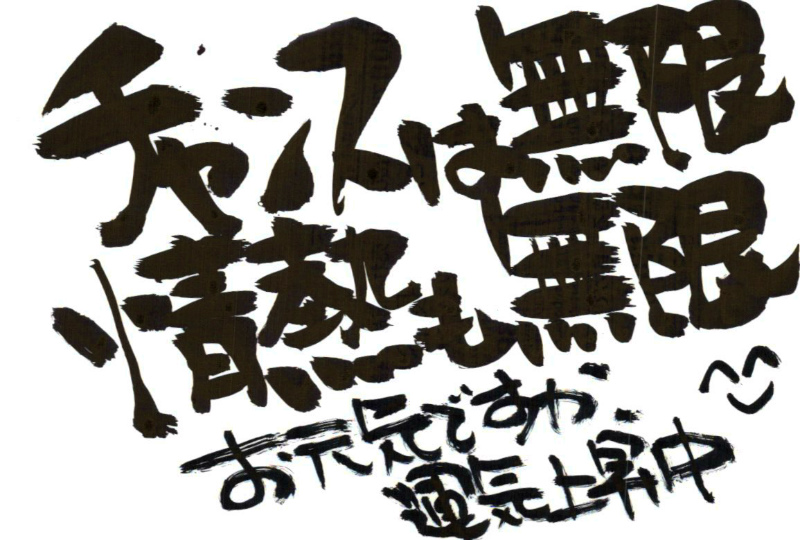 チャンスは無限
情熱も無限
お元気ですか
運気上昇中